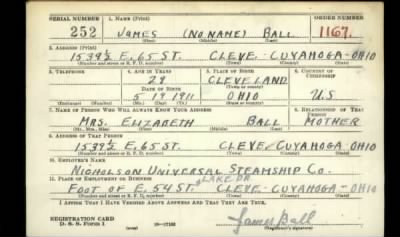 SERIAL NUMBER 1. NAME (Print) ORDER NUMBER
252 JAMES (NO NAME) BALL 1167.
(First) (Middle) (Last)
2. ADDRESS (Print)
1539½ E. 65 ST. CLEVE - CUYAHOGA - OHIO
(Number and street or R. F. D. number) (Town) (County) (State)
3. TELEPHONE 4. AGE IN YEARS 5. PLACE OF BIRTH 6. COUNTRY OF CITIZENSHIP
29 CLEVELAND
DATE OF BIRTH (Town or county)
5 19 1911 OHIO U.S
(Exchange) (Number) (Mo.) (Day) (Yr.) (State or country)
7. NAME OF PERSON WHO WILL ALWAYS KNOW YOUR ADDRESS 8. RELATIONSHIP OF THAT PERSON
MRS. ELIZABETH BALL MOTHER
(Mr., Mrs., Miss) (First) (Middle) (Last)
9. ADDRESS OF THAT PERSON
1539½ E. 65 ST. CLEVE. CUYAHOGA - OHIO
(Number and street or R. F. D. number) (Town) (County) (State)
10. EMPLOYER'S NAME
NICHOLSON UNIVERSAL STEAMSHIP CO.
11. PLACE OF EMPLOYMENT OR BUSINESS
FOOT OF E. 54 ST. & LAKE DR CLEVE - CUYAHOGA - OHIO
(Number and street or R. F. D. number) (Town) (County) (State)
I AFFIRM THAT I HAVE VERIFIED ABOVE ANSWERS AND THAT THEY ARE TRUE.
REGISTRATION CARD
D. S. S. Form 1 16—17105 James Ball
(Registrant's signature)